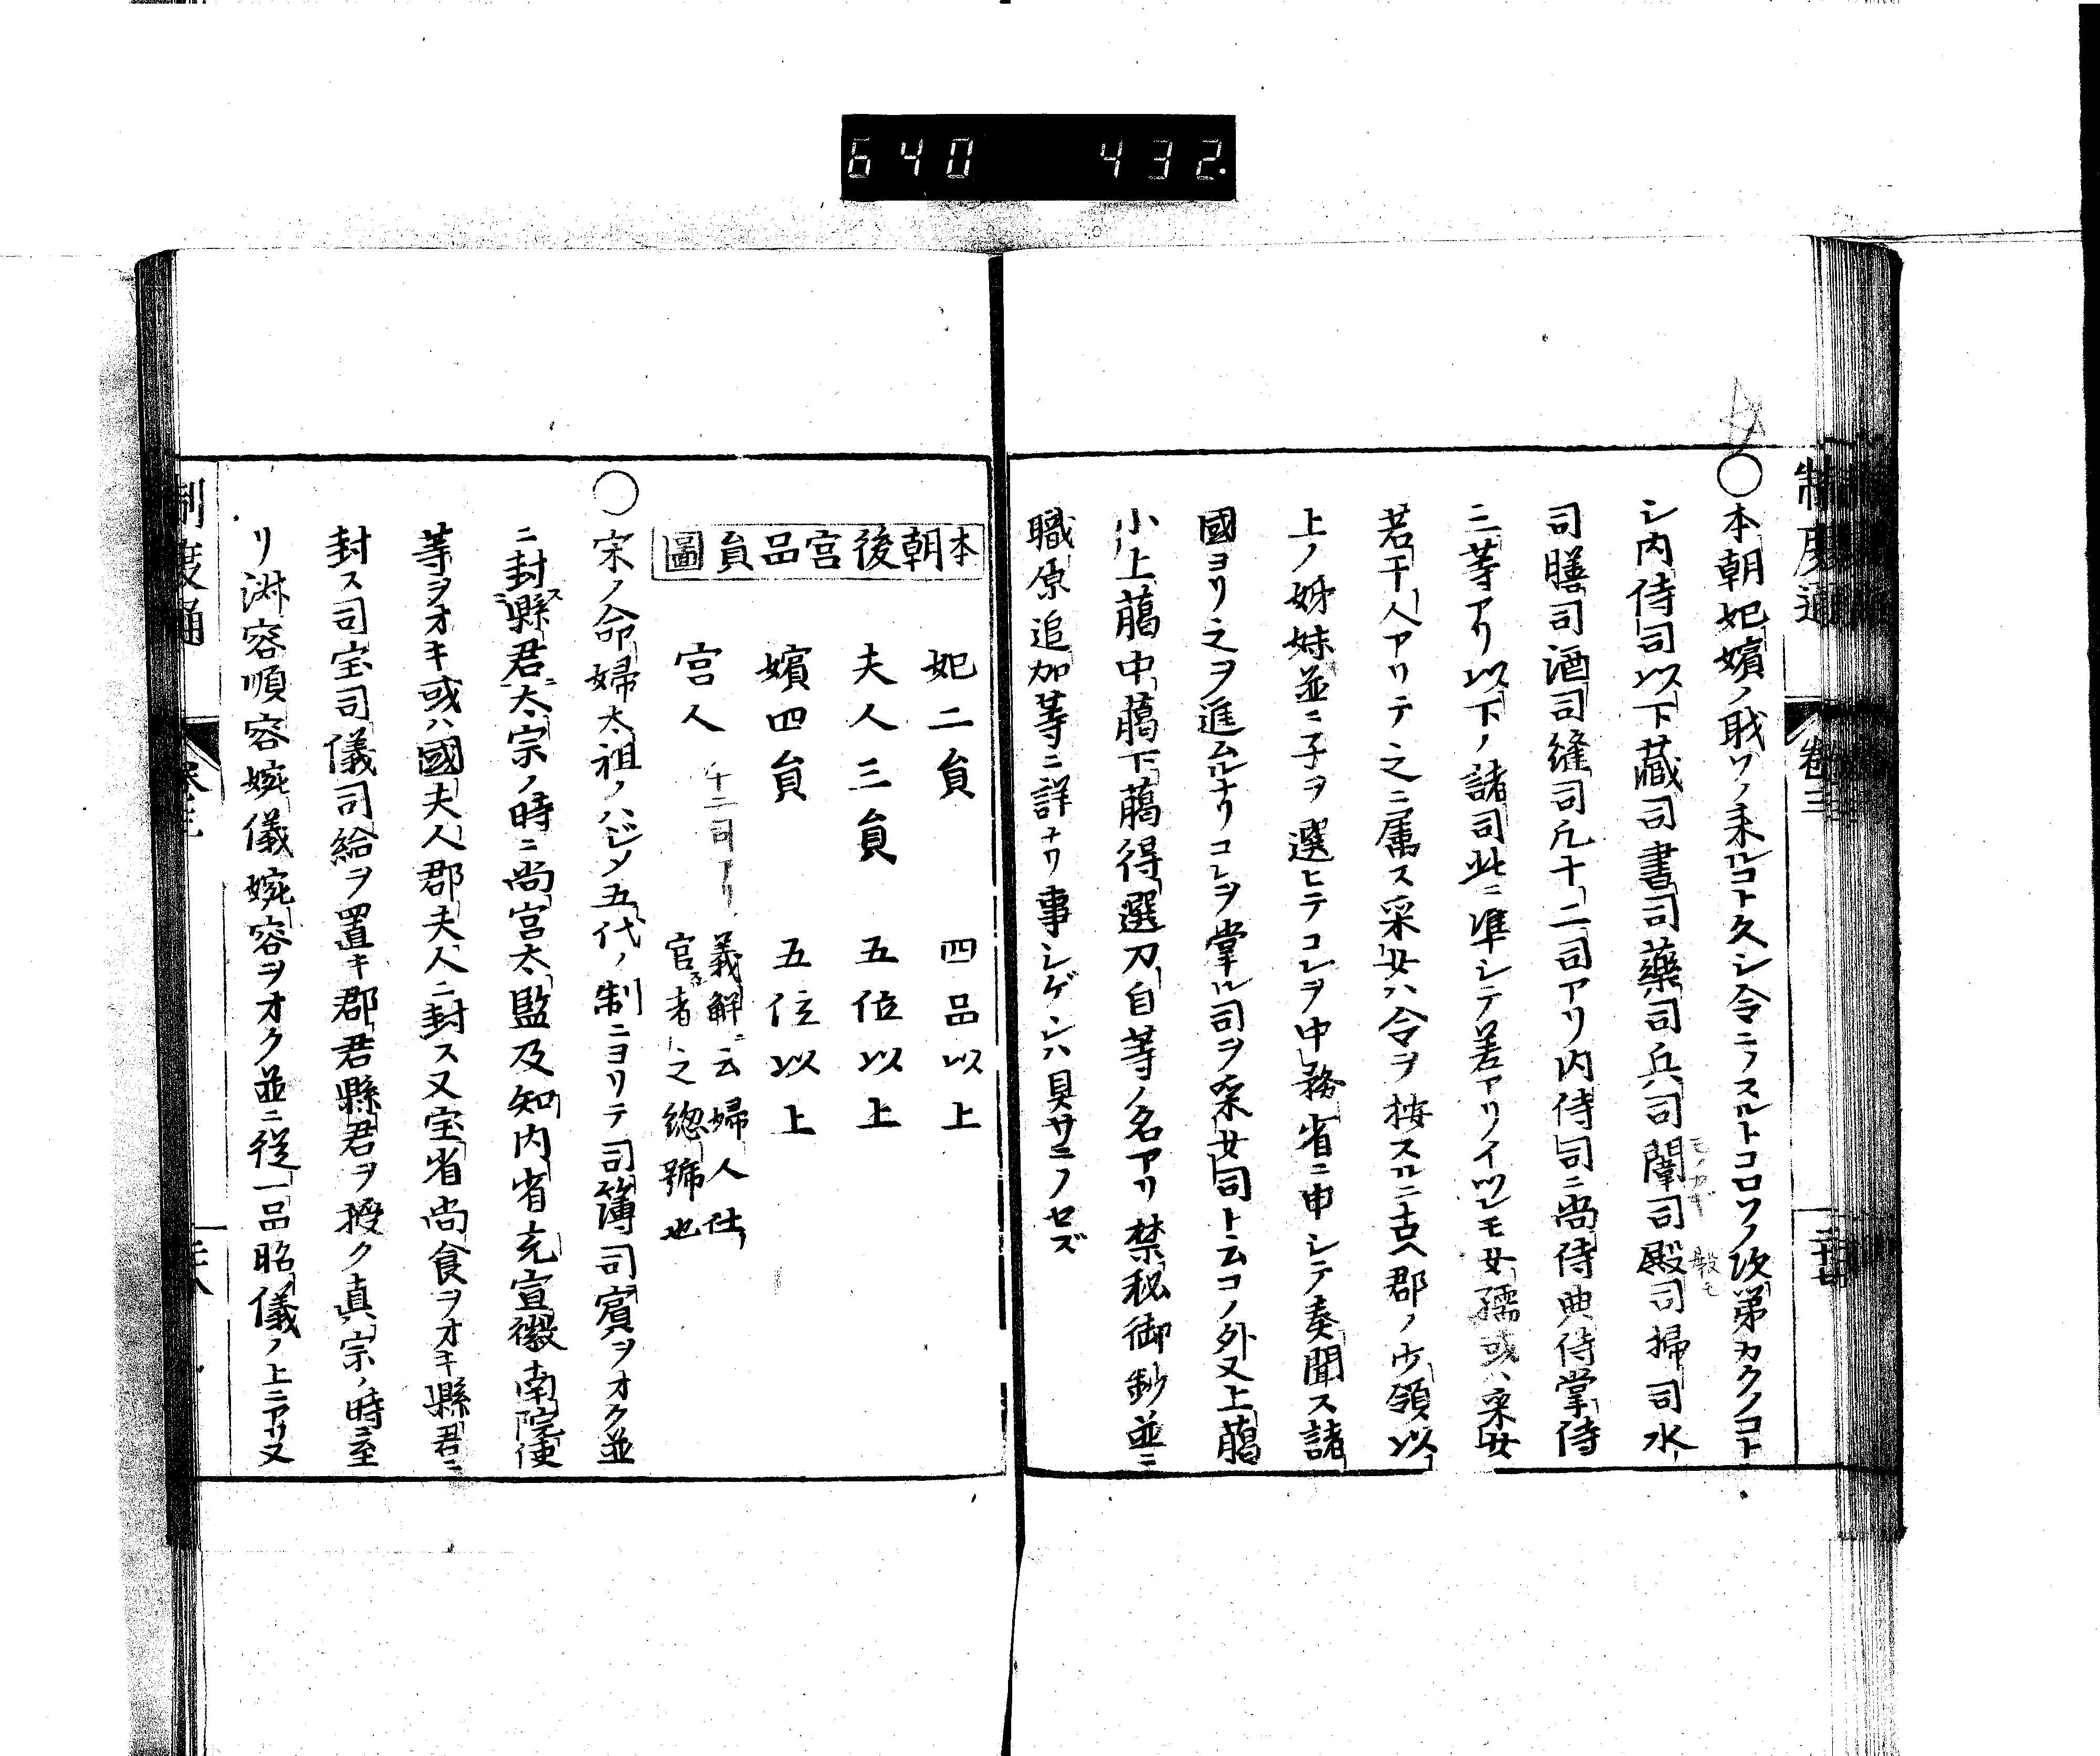 640 432.
制度通
卷三
二十七
○本朝妃嬪ノ職ソノ来ルコト久シ令ニノスルトコロソノ次第カクノコト
シ内侍司以下藏司書司藥司兵司闈司殿司掃司水
司膳司酒司縫司凡十二司アリ内侍司ニ尚侍典侍掌侍
三等アリ以下ノ諸司此ニ準シテ差アリイツレモ女孺或ハ采女
若干人アリテ之ニ属ス采女ハ令ヲ按スルニ古ヘ郡ノ少領以
上ノ姉妹並ニ子ヲ選ヒテコレヲ中務省ニ申シテ奏聞ス諸
國ヨリ之ヲ進ムルナリコレヲ掌ル司ヲ采女司ト云コノ外又上﨟
小上﨟中﨟下﨟得選刀自等ノ名アリ禁秘御鈔並ニ
職原追加等ニ詳ナリ事シゲシハ具サニノセズ
本朝後宮品員圖
妃二員 四品以上
夫人三員 五位以上
嬪四員 五位以上
宮人 十二司アリ 義解ニ云婦人仕
官者之緫號也
○宋ノ命婦太祖ノハジメ五代ノ制ニヨリテ司簿司賓ヲオク並
ニ封縣君太宗ノ時ニ尚宮太監及知内省充宣徽南院使
等ヲオキ或ハ國夫人郡夫人ニ封ス又宝省尚食ヲオキ縣君ニ
封ス司宝司儀司給ヲ置キ郡君縣君ヲ授ク真宗ノ時ニ至
リ淋容順容婉儀婉容ヲオク並ニ從一品昭儀ノ上ニアリ又
制度通
卷三